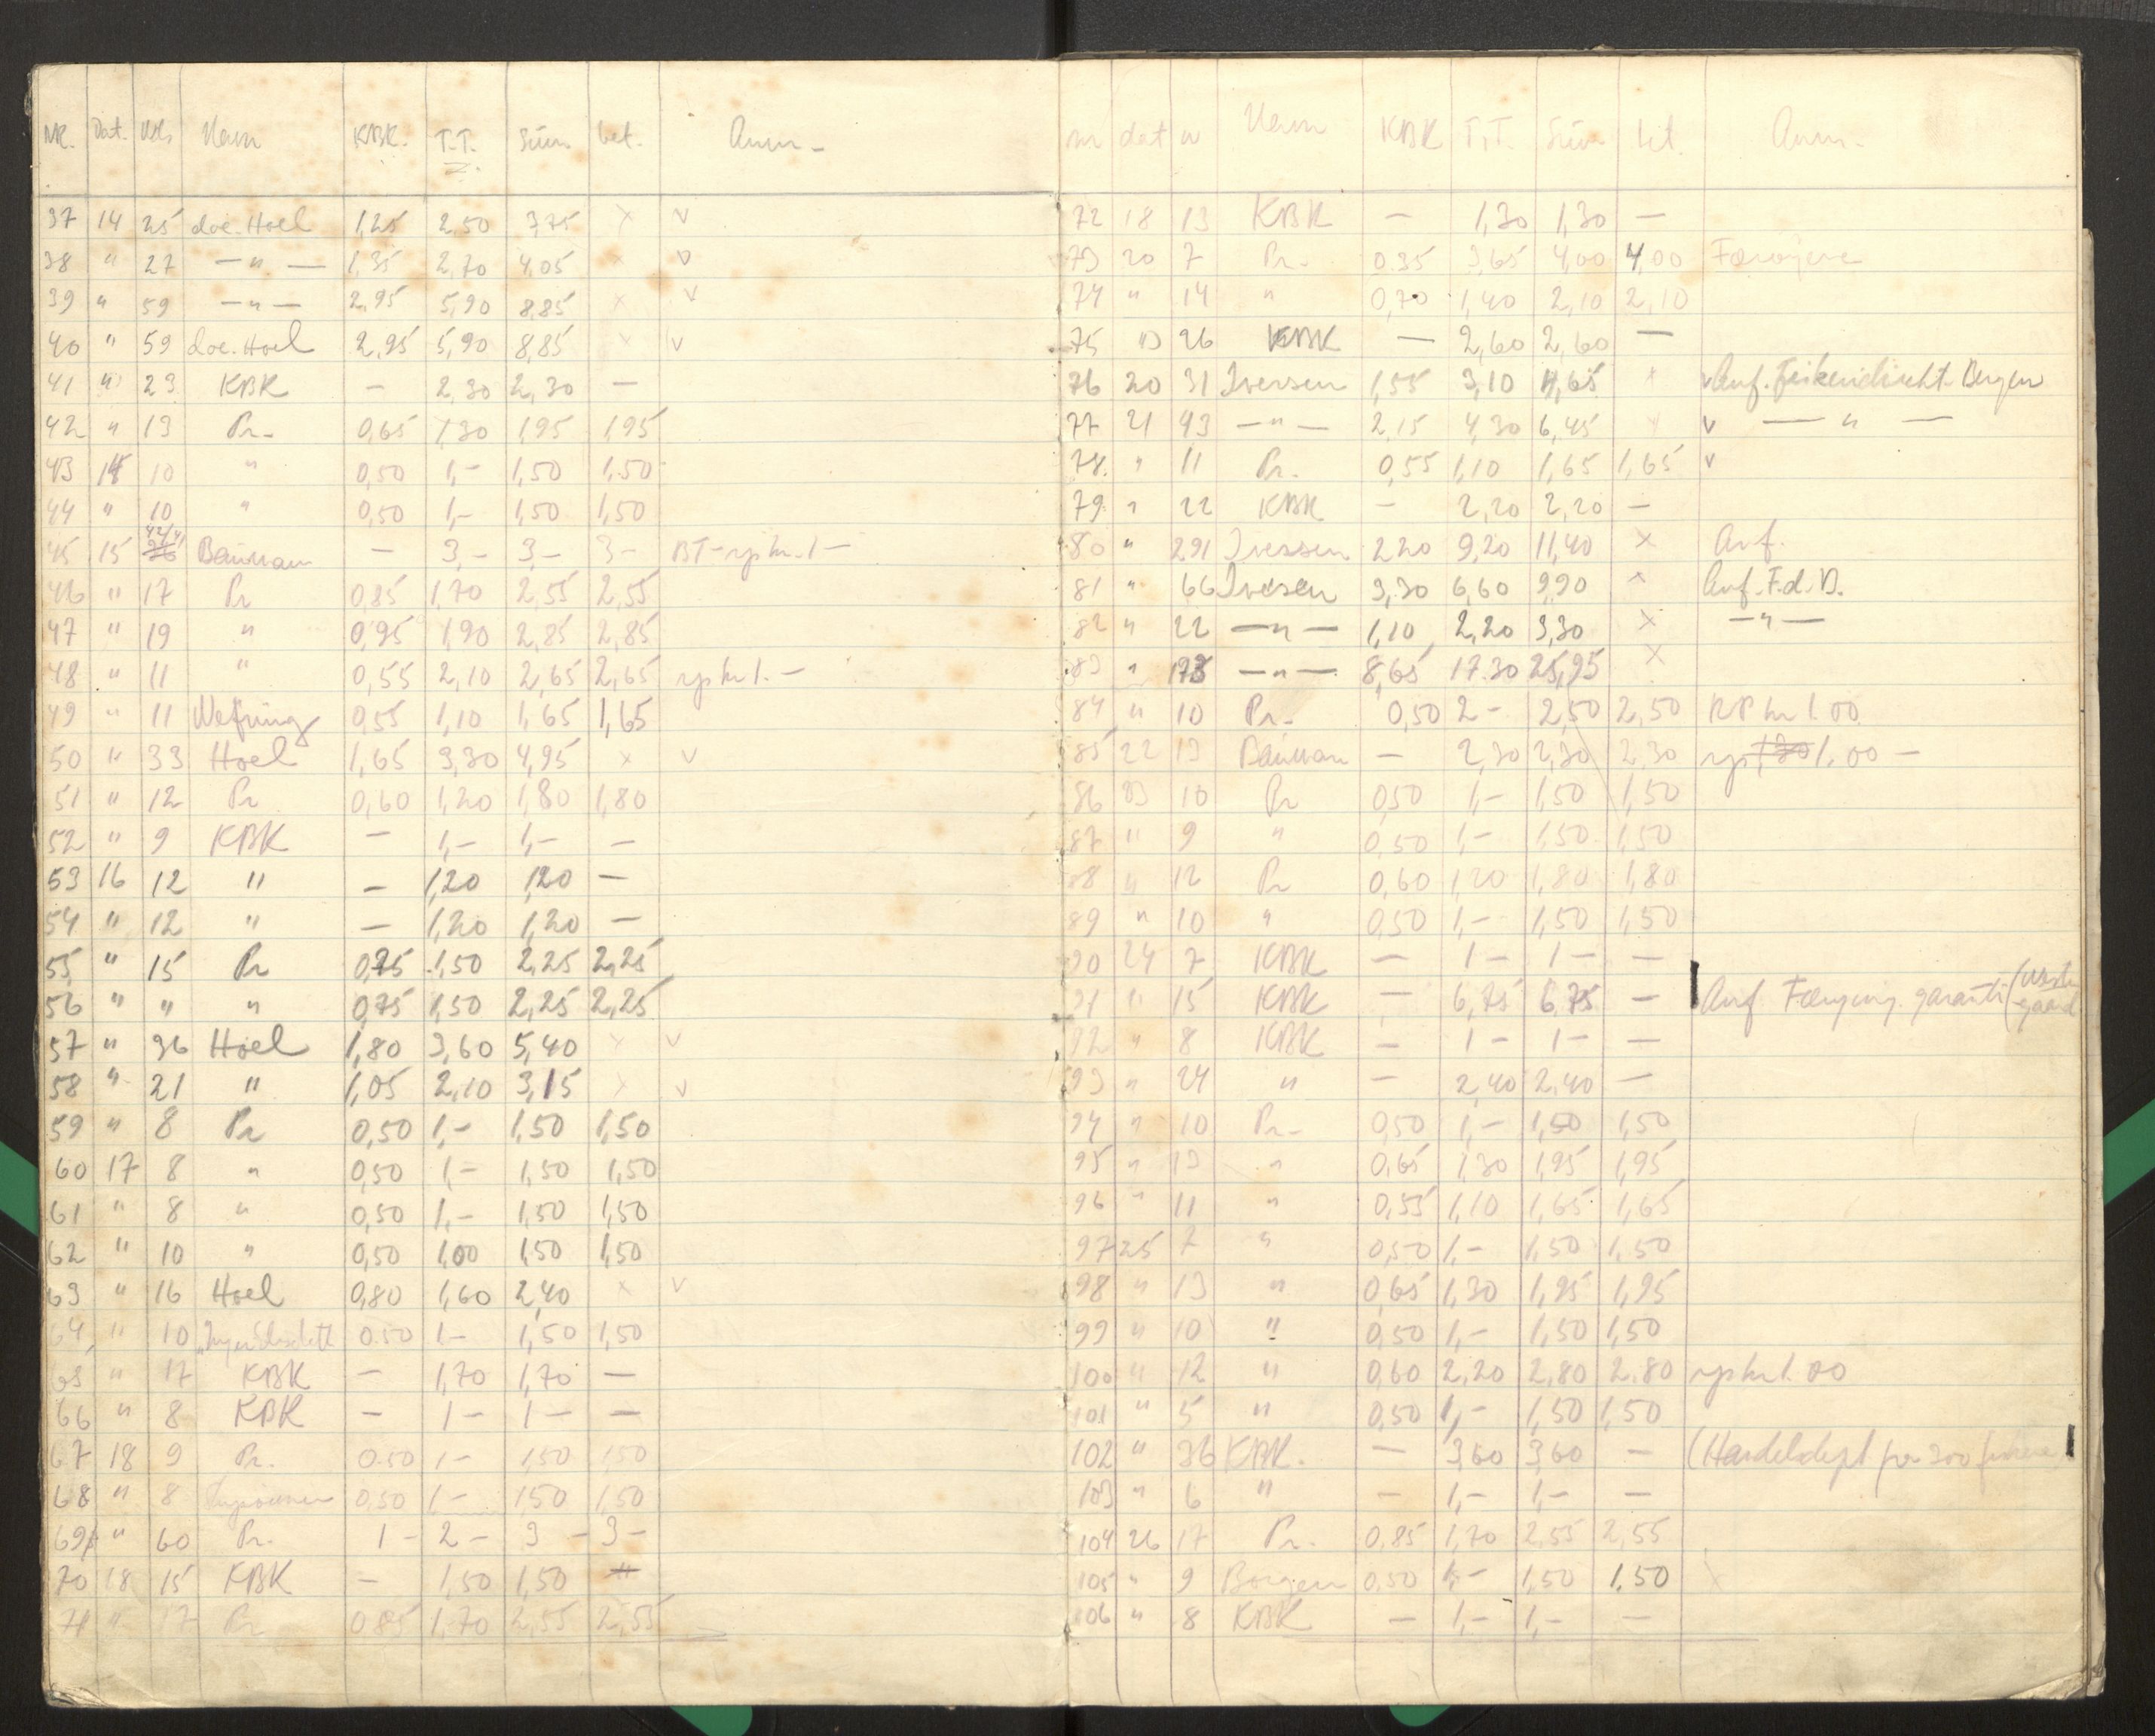 NR. Dat. Navn KBK. T.T. Sum. bet. Anm-
37 14 25 doc. Hoel 1,25 2,50 3,75 x v
38 " 27 —"— 1,35 2,70 4,05 x v
39 " 59 —"— 2,95 5,90 8,85 x v
40 " 59 doc. Hoel 2,95 5,90 8,85 x v
41 " 23 KBK — 2,30 2,30 —
42 " 13 Pr. 0,65 1,30 1,95 1,95
43 14 10 " 0,50 1,- 1,50 1,50
44 " 10 " 0,50 1,- 1,50 1,50
45 15 Bauman — 3,- 3,- 3- BT-rp kr. 1-
46 " 17 Pr 0,85 1,70 2,55 2,55
47 " 19 " 0,95 1,90 2,85 2,85
48 " 11 " 0,55 2,10 2,65 2,65 rp kr 1.-
49 " 11 Wefring 0,55 1,10 1,65 1,65
50 " 33 Hoel 1,65 3,30 4,95 x v
51 " 12 Pr 0,60 1,20 1,80 1,80
52 " 9 KBK — 1,- 1,- —
53 16 12 " — 1,20 1,20 —
54 " 12 " — 1,20 1,20 —
55 " 15 Pr 0,75 1,50 2,25 2,25
56 " " " 0,75 1,50 2,25 2,25
57 " 36 Hoel 1,80 3,60 5,40 x v
58 " 21 " 1,05 2,10 3,15 x v
59 " 8 Pr 0,50 1,- 1,50 1,50
60 17 8 " 0,50 1,- 1,50 1,50
61 " 8 " 0,50 1,- 1,50 1,50
62 " 10 " 0,50 1,00 1,50 1,50
63 " 16 Hoel 0,80 1,60 2,40 x v
64 " 10 0.50 1- 1,50 1,50
65 " 17 KBK — 1,70 1,70 —
66 " 8 KBK — 1- 1- —
67 18 9 Pr. 0.50 1- 1,50 1,50
68 " 8 0,50 1- 1,50 1,50
69 " 60 Pr. 1- 2- 3- 3-
70 18 15 KBK — 1,50 1,50
71 " 17 Pr 0.85 1,70 2,55 2,55
nr dat w Navn KBK T.T. Sum bet. Anm-
72 18 13 KBK — 1,30 1,30 —
73 20 7 Pr. 0.35 3,65 4,00 4,00 Færøyene
74 " 14 " 0,70 1,40 2,10 2,10
75 " 26 KBK — 2,60 2,60 —
76 20 31 Iversen 1,55 3,10 4,65 x v Anf. Fiskeridirekt. Bergen
77 21 43 —"— 2,15 4,30 6,45 x v — " —
78. " 11 Pr. 0,55 1,10 1,65 1,65 v
79 " 22 KBK — 2,20 2,20 —
80 " 291 Iversen 2.20 9,20 11,40 x Anf.
81 " 66 Iversen 3,30 6,60 9,90 x Anf. F.d.B.
82 " 22 —"— 1,10 2,20 3,30 x —"—
83 " 173 —"— 8,65 17.30 25,95 x
84 " 10 Pr. 0,50 2- 2,50 2,50 RP kr 1.00
85 22 13 Bauman — 2,30 2,30 2,30 rp 1.00 -
86 23 10 Pr 0,50 1,- 1,50 1,50
87 " 9 " 0,50 1,- 1,50 1,50
88 " 12 Pr 0,60 1,20 1,80 1,80
89 " 10 " 0,50 1,- 1,50 1,50
90 24 7 KBK — 1- 1- —
91 " 15 KBK — 6,75 6,75 — Anf garanti
92 " 8 KBK — 1- 1- —
93 " 24 " — 2,40 2,40 —
94 " 10 Pr- 0,50 1,- 1,50 1,50
95 " 13 " 0,65 1,30 1,95 1,95
96 " 11 " 0,55 1,10 1,65 1,65
97 25 7 " 0,50 1,- 1,50 1,50
98 " 13 " 0,65 1,30 1,95 1,95
99 " 10 " 0,50 1,- 1,50 1,50
100 " 12 " 0,60 2,20 2,80 2.80 rp kr 1.00
101 " 5 " 0,50 1,- 1,50 1,50
102 " 36 KBK. — 3,60 3,60 — (Handelsdept
103 " 6 " — 1,- 1,- —
104 26 17 Pr. 0,85 1,70 2,55 2,55
105 " 9 Borgen 0,50 1,- 1,50 1,50 x
106 " 8 KBK — 1,- 1,- —